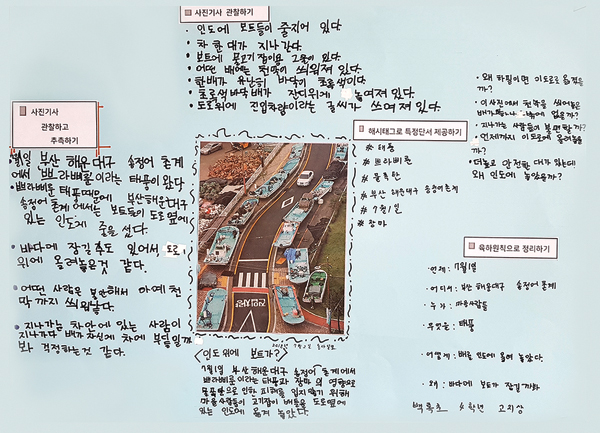 사진기사 관찰하기
• 인도에 보트들이 줄지어 있다.
• 차 한대가 지나간다.
• 보트에 물고기잡이용 그물이 있다.
• 어떤 배에는 천막이 씌워져 있다.
• 한배가 유난히 바닥이 초록색이다.
• 초록색 바닥배가 잔디위에 놓여져 있다.
• 도로위에 진입차량이라는 글씨가 쓰여져 있다.
사진기사
관찰하고
추측하기
부산 해운대구 송정어 동계
에서 쁘라삐룬이라는 태풍이 왔다
• 쁘라삐룬 태풍때문에 부산해운대구
송정어 동계에서는 보트들이 도로옆에
있는 인도에 줄을 섰다.
• 바다에 잠길 있어서 도로
위에 올려놓은것 같다.
• 어떤 사람은 해서 아예 천
막 까지 씌워놨다.
• 지나가는 차안에 있는 사람이
지나가다 배가 자신의 차에 부딪칠까
봐 걱정하는것 같다.
해시태그로 특정단서 제공하기
# 태풍
# 쁘라삐룬
# 부산 해운대구 송정어동계
# 7월1일
# 장마
• 왜 하필이면 인도로 옮겼을
까?
• 이사진에서 천막을 씌어놓은
배가
• 지나가는 사람들이 불편할까?
• 언제까지 인도에 올려놓을
까?
• 더넓고 안전한 대가 있는데
왜 인도에 놓았을까?
육하원칙으로 정리하기
• 언제: 7월1일
• 어디서: 부산 해운대구 송정어 동계
• 누가: 마을사람들
• 무엇을: 태풍
• 어떻게: 배를 인도에 올려 놓았다.
• 왜: 바다에 보트가 잠길까봐
<인도 위에 보트가?>
7월1일 부산해운대구 송정어 동계에서
쁘라삐룬이라는 태풍과 장마의 영향으로
인한 피해를 입지않기 위해
마을사람들이 고기잡이 배들을 도로옆에
있는 인도에 옮겨 놓았다.